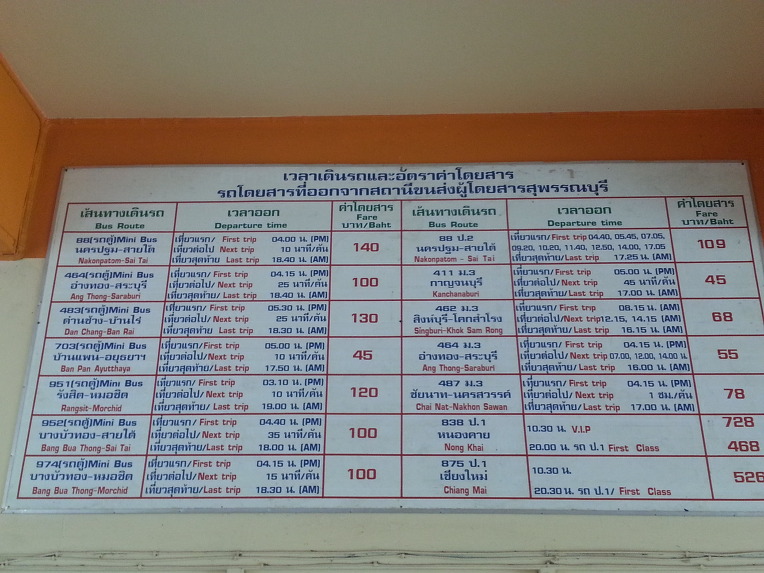 เวลาเดินรถและอัตราค่าโดยสาร
รถโดยสารที่ออกจากสถานีขนส่งผู้โดยสารสุพรรณบุรี
เส้นทางเดินรถ
Bus Route
เวลาออก
Departure time
ค่าโดยสาร
Fare
บาท/Baht
88(รถตู้)Mini Bus
นครปฐม-สายใต้
Nakonpatom-Sai Tai
เที่ยวแรก/ First trip 04.00 น. (PM)
เที่ยวต่อไป/ Next trip 10 นาที/คัน
เที่ยวสุดท้าย/ Last trip 18.40 น. (AM)
140
464(รถตู้)Mini Bus
อ่างทอง-สระบุรี
Ang Thong-Saraburi
เที่ยวแรก/First trip 04.15 น. (PM)
เที่ยวต่อไป/Next trip 25 นาที/คัน
เที่ยวสุดท้าย/Last trip 18.40 น. (AM)
100
483(รถตู้)Mini Bus
ด่านช้าง-บ้านไร่
Dan Chang-Ban Rai
เที่ยวแรก/First trip 05.30 น. (PM)
เที่ยวต่อไป/Next trip 25 นาที/คัน
เที่ยวสุดท้าย/ Last trip 18.30 น. (AM)
130
703(รถตู้)Mini Bus
บ้านแพน-อยุธยาฯ
Ban Pan Ayutthaya
เที่ยวแรก/First trip 05.00 น. (PM)
เที่ยวต่อไป/Next trip 10 นาที/คัน
เที่ยวสุดท้าย/Last trip 17.50 น. (AM)
45
951(รถตู้)Mini Bus
รังสิต-หมอชิต
Rangsit-Morchid
เที่ยวแรก/First trip 03.10 น. (PM)
เที่ยวต่อไป/Next trip 10 นาที/คัน
เที่ยวสุดท้าย/Last trip 19.00 น. (AM)
120
952(รถตู้)Mini Bus
บางบัวทอง-สายใต้
Bang Bua Thong-Sai Tai
เที่ยวแรก/First trip 04.40 น. (PM)
เที่ยวต่อไป/Next trip 35 นาที/คัน
เที่ยวสุดท้าย/Last trip 18.00 น. (AM)
100
974(รถตู้)Mini Bus
บางบัวทอง-หมอชิต
Bang Bua Thong-Morchid
เที่ยวแรก/First trip 04.15 น. (PM)
เที่ยวต่อไป/Next trip 15 นาที/คัน
เที่ยวสุดท้าย/Last trip 18.30 น. (AM)
100
เส้นทางเดินรถ
Bus Route
เวลาออก
Departure time
ค่าโดยสาร
Fare
บาท/Baht
88 ป.2
นครปฐม-สายใต้
Nakonpatom - Sai Tai
เที่ยวแรก/ First trip 04.40, 05.45, 07.05,
09.20, 10.20, 11.40, 12.50, 14.00, 17.05
เที่ยวสุดท้าย/ Last trip 17.25 น. (AM)
109
411 ม.3
กาญจนบุรี
Kanchanaburi
เที่ยวแรก/First trip 05.00 น. (PM)
เที่ยวต่อไป/Next trip 45 นาที/คัน
เที่ยวสุดท้าย/Last trip 17.00 น. (AM)
45
462 ม.3
สิงห์บุรี-โคกสำโรง
Singburi-Khok Sam Rong
เที่ยวแรก/First trip 08.15 น. (AM)
เที่ยวต่อไป/ Next trip12.15, 14.15 (AM)
เที่ยวสุดท้าย/ Last trip 16.15 น. (AM)
68
464 ม.3
อ่างทอง-สระบุรี
Ang Thong-Saraburi
เที่ยวแรก/First trip 04.15 น. (PM)
เที่ยวต่อไป/ Next trip 07.00, 12.00, 14.00 น
เที่ยวสุดท้าย/Last trip 16.00 น. (AM)
55
487 ม.3
ชัยนาท-นครสวรรค์
Chai Nat-Nakhon Sawan
เที่ยวแรก/First trip 04.15 น. (PM)
เที่ยวต่อไป/Next trip 1 ชม./คัน
เที่ยวสุดท้าย/Last trip 17.00 น. (AM)
78
838 ป.1
หนองคาย
Nong Khai
10.30 น. V.I.P
20.00 น. รถ ป.1 First Class
728
468
875 ป.1
เชียงใหม่
Chiang Mai
10.30 น.
20.30 น. รถ ป.1/ First Class
526